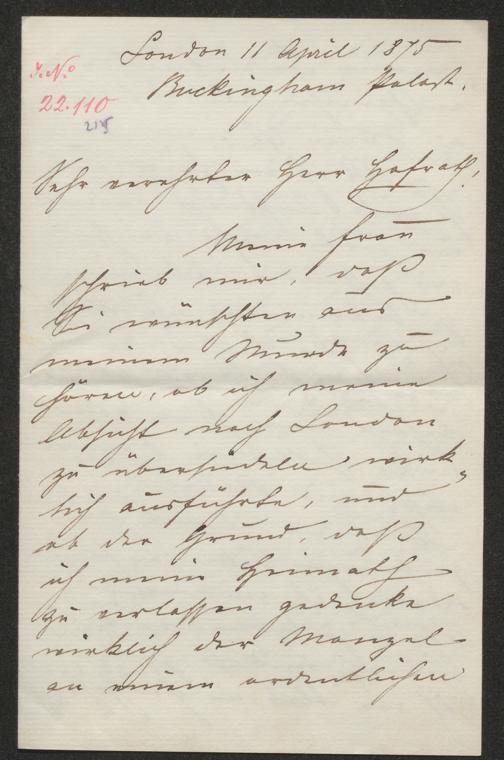 London 11 April 1875
Buckingham Palast.
J. No
22.110
Sehr verehrter Herr Hofrath!
Meine Frau
schrieb mir, daß
Sie wünschten aus
meinem Munde zu
hören, ob ich meine
Absicht nach London
zu übersiedeln wirk-
lich ausführte, und
ob der Grund, daß
ich meine Heimath
zu verlassen gedenke
wirklich der Mangel
an einem ordentlichen